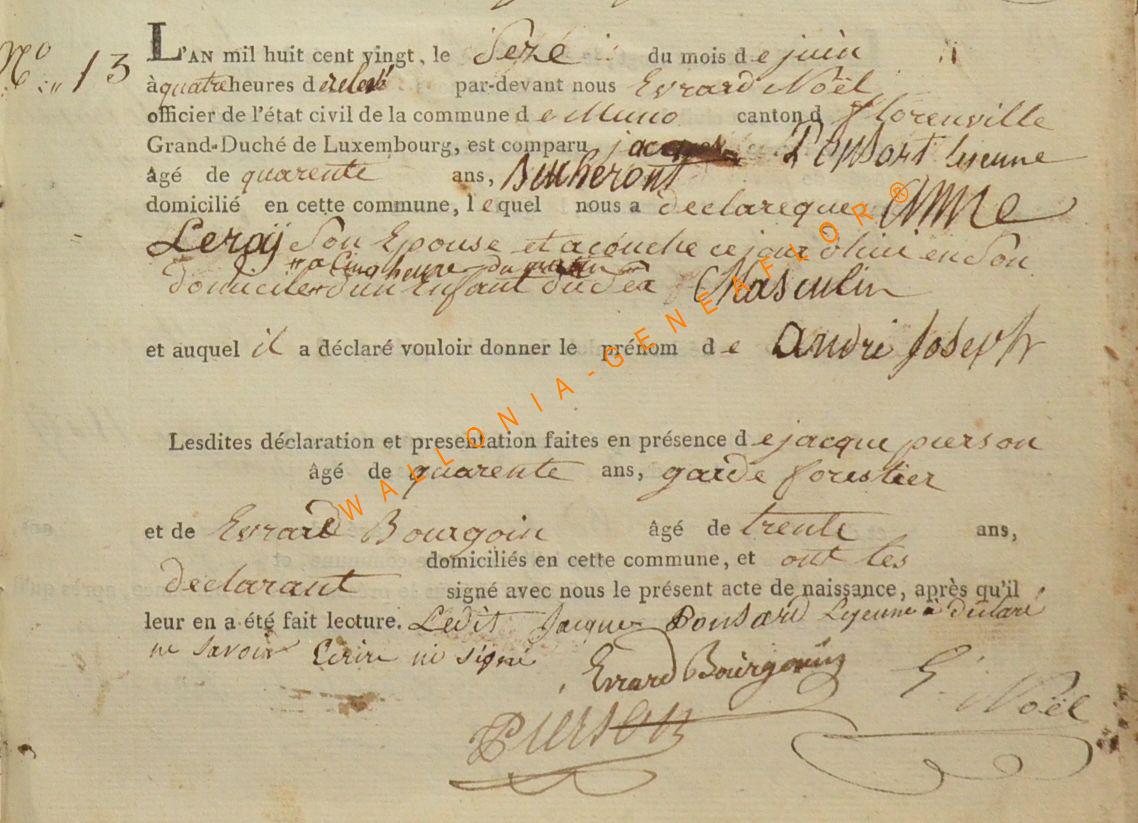 N° 13
L'AN mil huit cent vingt, le Sezé du mois de juin
à quatre heures du par-devant nous Evrard Noël
officier de l'état civil de la commune de Muno canton d florenville
Grand-Duché de Luxembourg, est comparu jacques Ponsart lejeune
âgé de quarente ans, Bucheront
domicilié en cette commune, lequel nous a declare que Anne
Leroÿ Son Epouse et acouche ce jour dhui en Son
"a Cinq heure Du matin"
domicile d'un Enfant du Sex Masculin
et auquel il a déclaré vouloir donner le prénom de André Joseph
Lesdites déclaration et presentation faites en présence de jacque pierson
âgé de quarente ans, garde forestier
et de Evrard Bourgoin âgé de trente ans,
domiciliés en cette commune, et ont les
declarant signé avec nous le présent acte de naissance, après qu'il
leur en a été fait lecture. Ledit Jacque Ponsard Lejeune a déclaré
ne Savoir Ecrire ni signé
Evrard Bourgouin
E. Noël
Pierson
WALLONIA-GENEAFLOR®